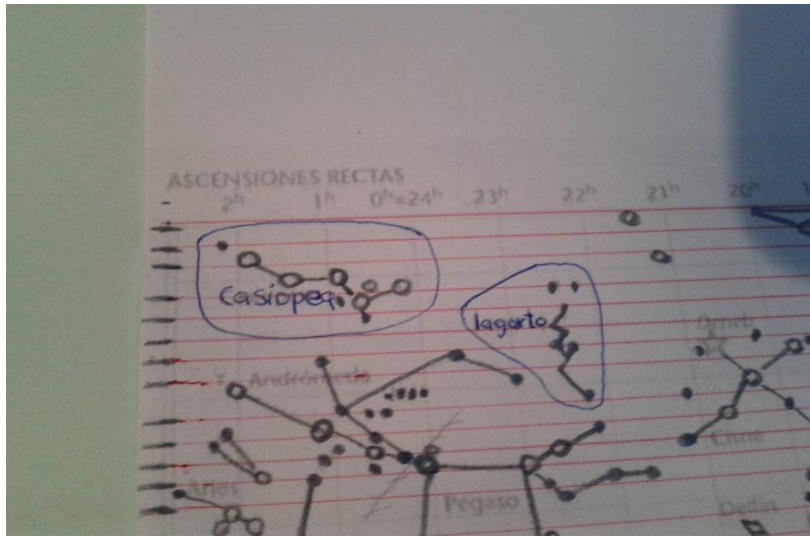 ASCENSIONES RECTAS
2h 1h 0h=24h 23h 22h 21h 20h
Casiopea
lagarto
Deneb
Andrómeda
Cisne
Aries
Pegaso
Delfín